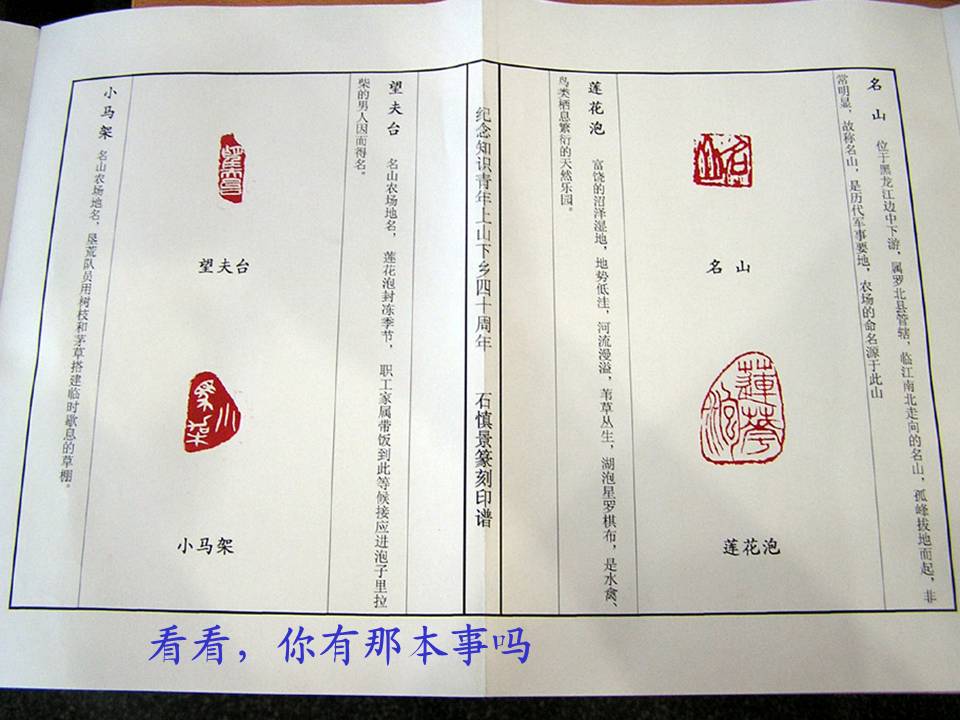 名山 位于黑龙江边中下游，属罗北县管辖，临江南北走向的名山，孤峰拔地而起，非
常明显，故称名山，是历代军事要地，农场的命名源于此山
名山
莲花泡
莲花泡 富饶的沼泽湿地，地势低洼，河流漫溢，苇草丛生，湖泡星罗棋布，是水禽、
鸟类栖息繁衍的天然乐园。
纪念知识青年上山下乡四十周年 石慎景篆刻印谱
望夫台 名山农场地名，莲花泡封冻季节，职工家属带饭到此等候接应进泡子里拉
柴的男人因而得名。
望夫台
小马架
小马架 名山农场地名，垦荒队员用树枝和茅草搭建临时歇息的草棚。
名山
蓮花泡
看看，你有那本事吗